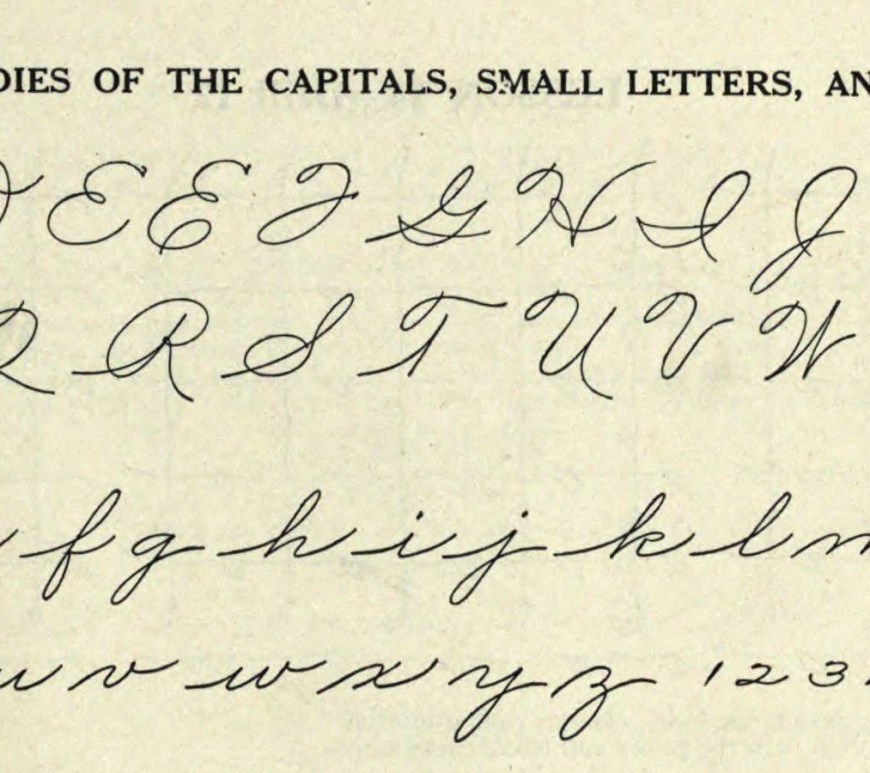 DIES OF THE CAPITALS, SMALL LETTERS, AN
D E E F G H I J
Q R S T U V W
f g h i j k l m
u v w x y z 1 2 3